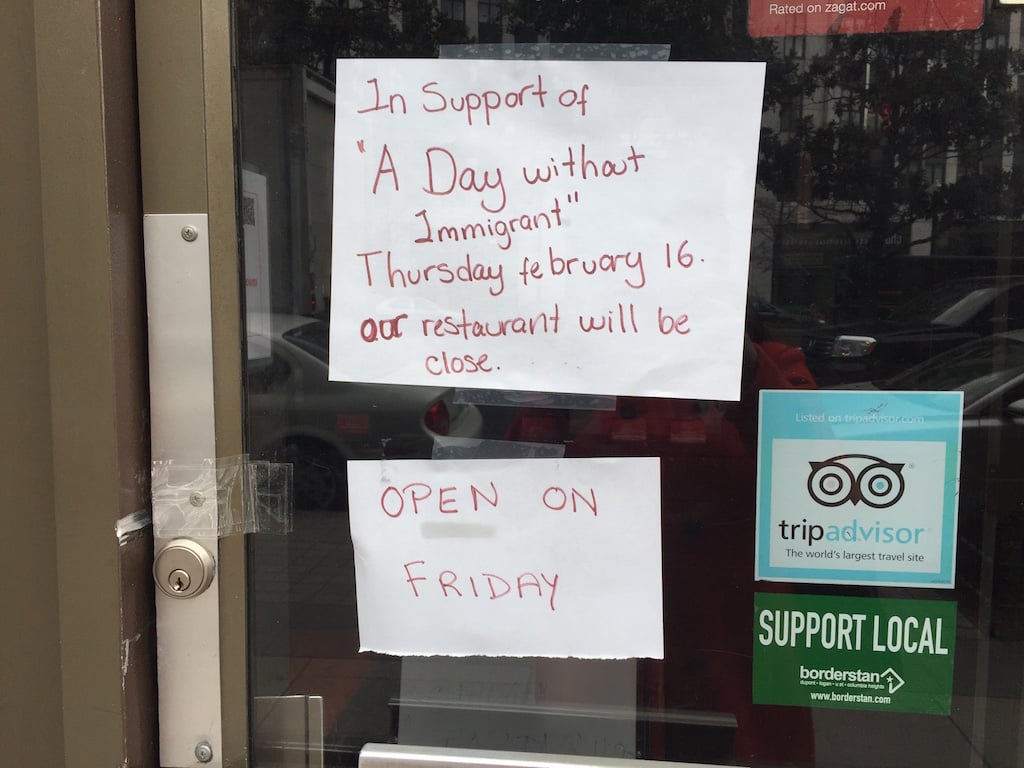 Rated on zagat.com
In Support of
"A Day without
Immigrant"
Thursday february 16.
our restaurant will be
close.
OPEN ON
FRIDAY
Listed on tripadvisor.com
tripadvisor
The world's largest travel site
SUPPORT LOCAL
borderstan
dupont • logan • u st • columbia heights
www.borderstan.com